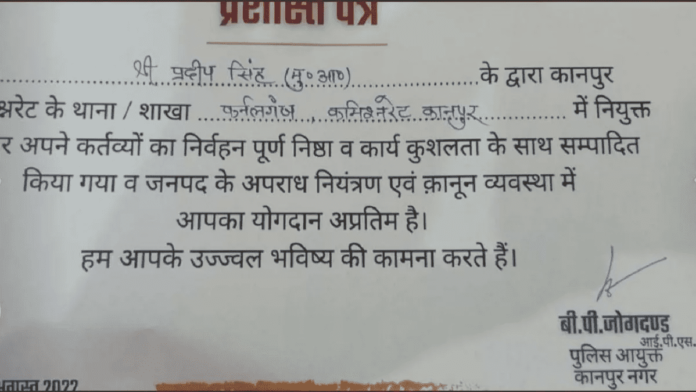 प्रशस्ति पत्र
श्री प्रदीप सिंह (मु॰आ॰) के द्वारा कानपुर
के थाना / शाखा कर्नलगंज, कमिश्नरेट कानपुर में नियुक्त
अपने कर्तव्यों का निर्वहन पूर्ण निष्ठा व कार्य कुशलता के साथ सम्पादित
किया गया व जनपद के अपराध नियंत्रण एवं क़ानून व्यवस्था में
आपका योगदान अप्रतिम है।
हम आपके उज्ज्वल भविष्य की कामना करते हैं।
बी.पी.जोगदण्ड
आई.पी.एस.
पुलिस आयुक्त
कानपुर नगर
2022